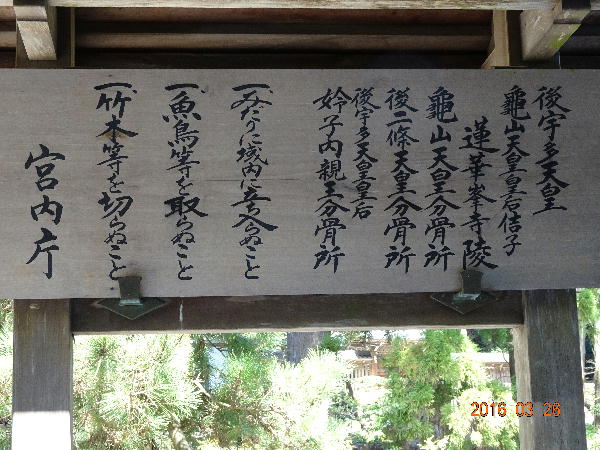 後宇多天皇
龜山天皇皇后佶子
蓮華峯寺陵
龜山天皇分骨所
後二條天皇分骨所
後宇多天皇皇后
姈子内親王分骨所
一、みだりに域内に立ち入らぬこと
一、魚鳥等を取らぬこと
一、竹木等を切らぬこと
宮内庁
2016 03 26